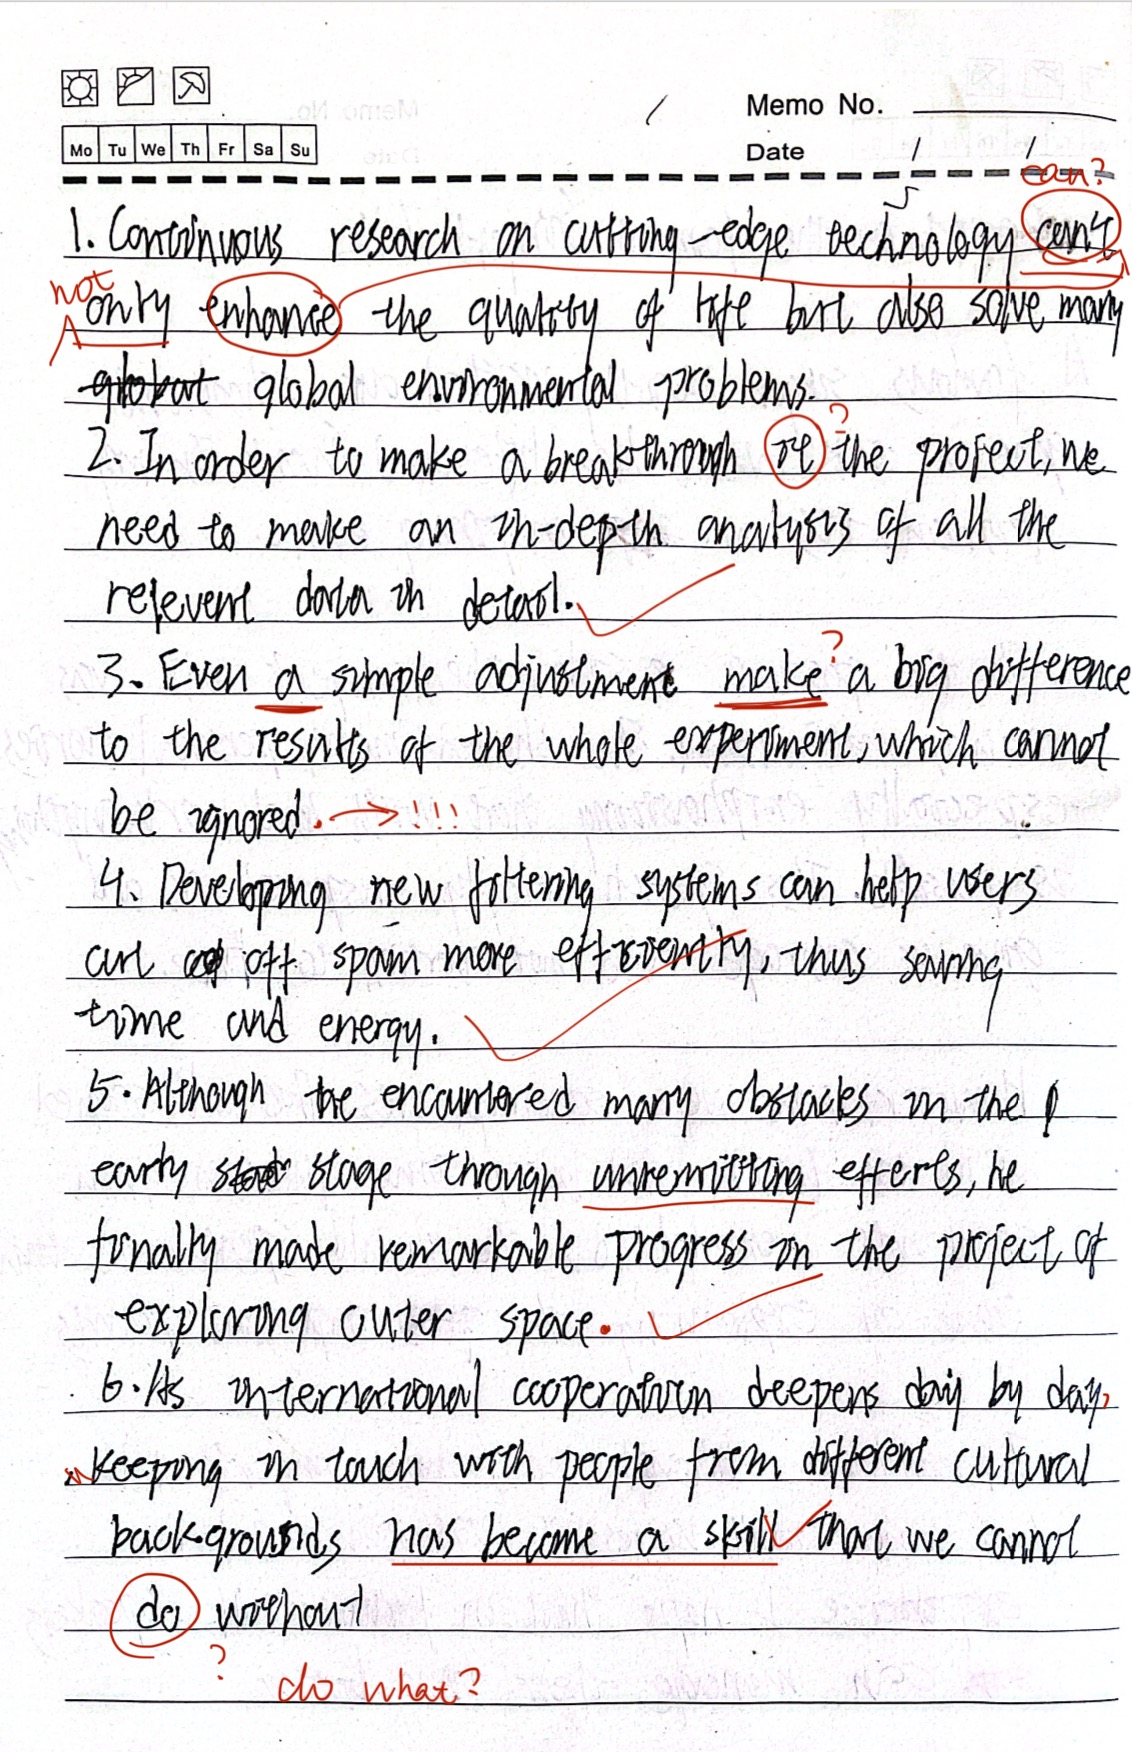 Memo No.
Mo Tu We Th Fr Sa Su
Date / /
can?
1. Continuous research on cutting-edge technology can't
not
only enhance the quality of life but also solve many
global environmental problems.
?
2. In order to make a breakthrough of the project, we
need to make an in-depth analysis of all the
relevent data in detail.
?
3. Even a simple adjustment make a big difference
to the results of the whole experiment, which cannot
be ignored. → !!!
4. Developing new filtering systems can help users
cut off spam more efficiently, thus saving
time and energy.
5. Although he encountered many obstacles in the
early stage through unremitting efforts, he
finally made remarkable progress in the project of
exploring outer space.
6. As international cooperation deepens day by day,
keeping in touch with people from different cultural
backgrounds has become a skill that we cannot
do without
?
do what?